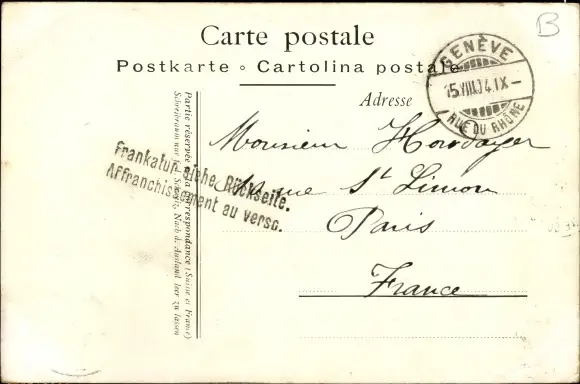 B
Carte postale
Postkarte ∘ Cartolina postale
GENÈVE
15.VIII.04.IX–
RUE DU RHÔNE
Adresse
Monsieur
Frankatur siehe Rückseite.
Affranchissement au verso.
rue St Simon
Paris
France
Partie réservée à la correspondance (Suisse et France)
Schreibraum nur für d. Schweiz. Nach d. Ausland leer zu lassen